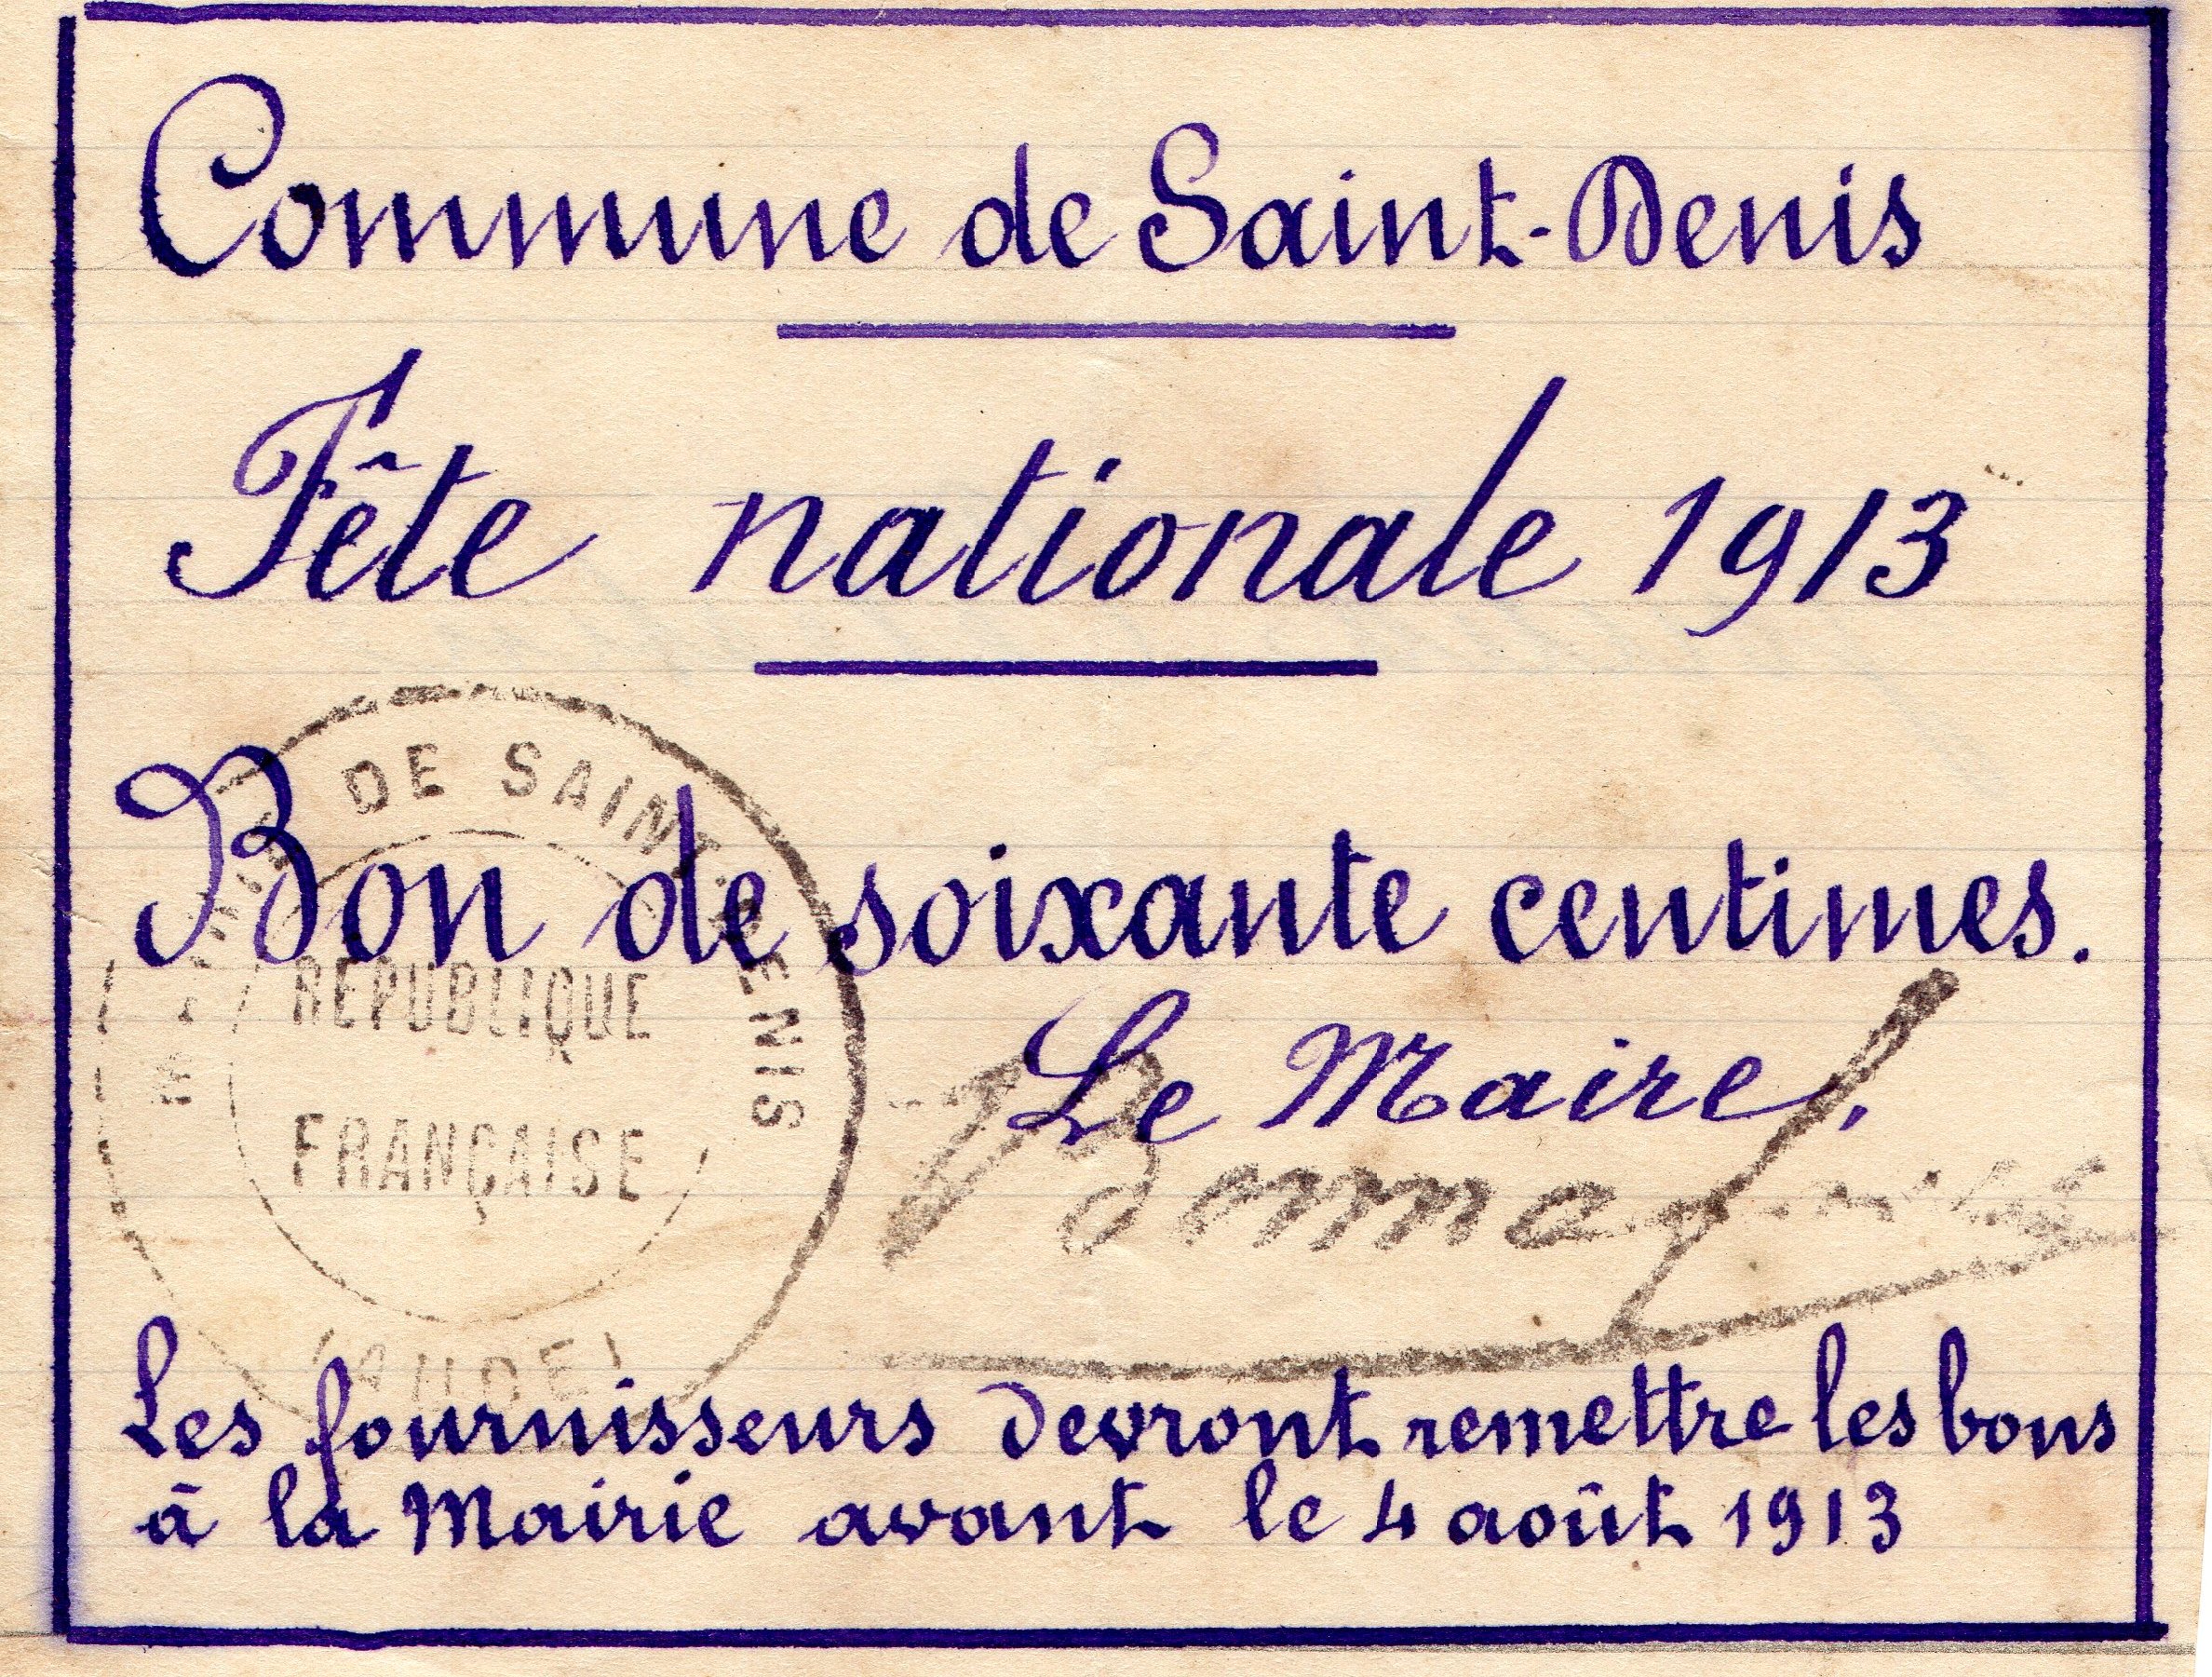 Commune de Saint-Denis
Fête nationale 1913
Bon de soixante centimes.
Le Maire,
Les fournisseurs devront remettre les bons
à la Mairie avant le 4 août 1913
MAIRIE DE SAINT-DENIS
RÉPUBLIQUE
FRANÇAISE
(AUDE)